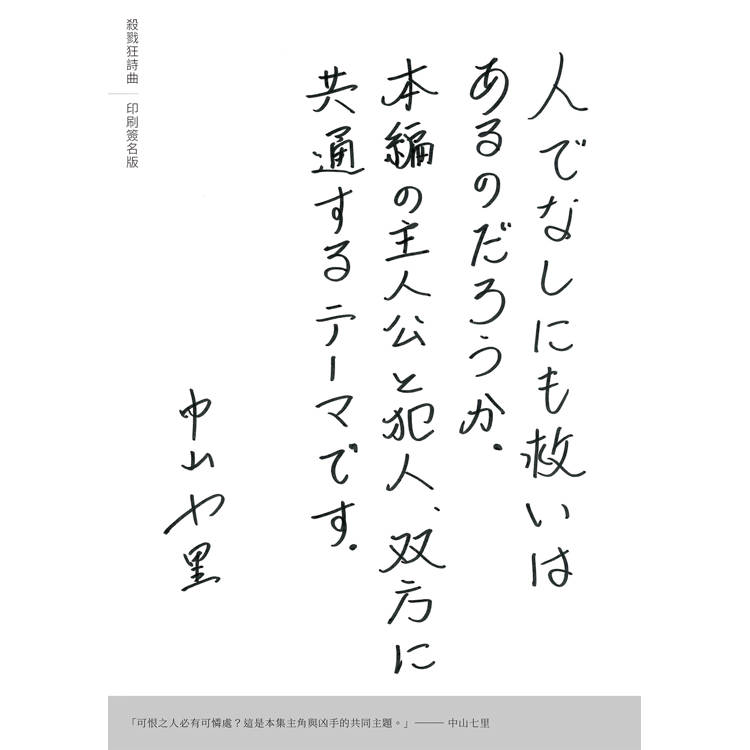 殺戮狂詩曲
印刷簽名版
人でなしにも救いは
あるのだろうか。
本編の主人公と犯人、双方に
共通するテーマです。
中山七里
「可恨之人必有可憐處？這是本集主角與凶手的共同主題。」——— 中山七里